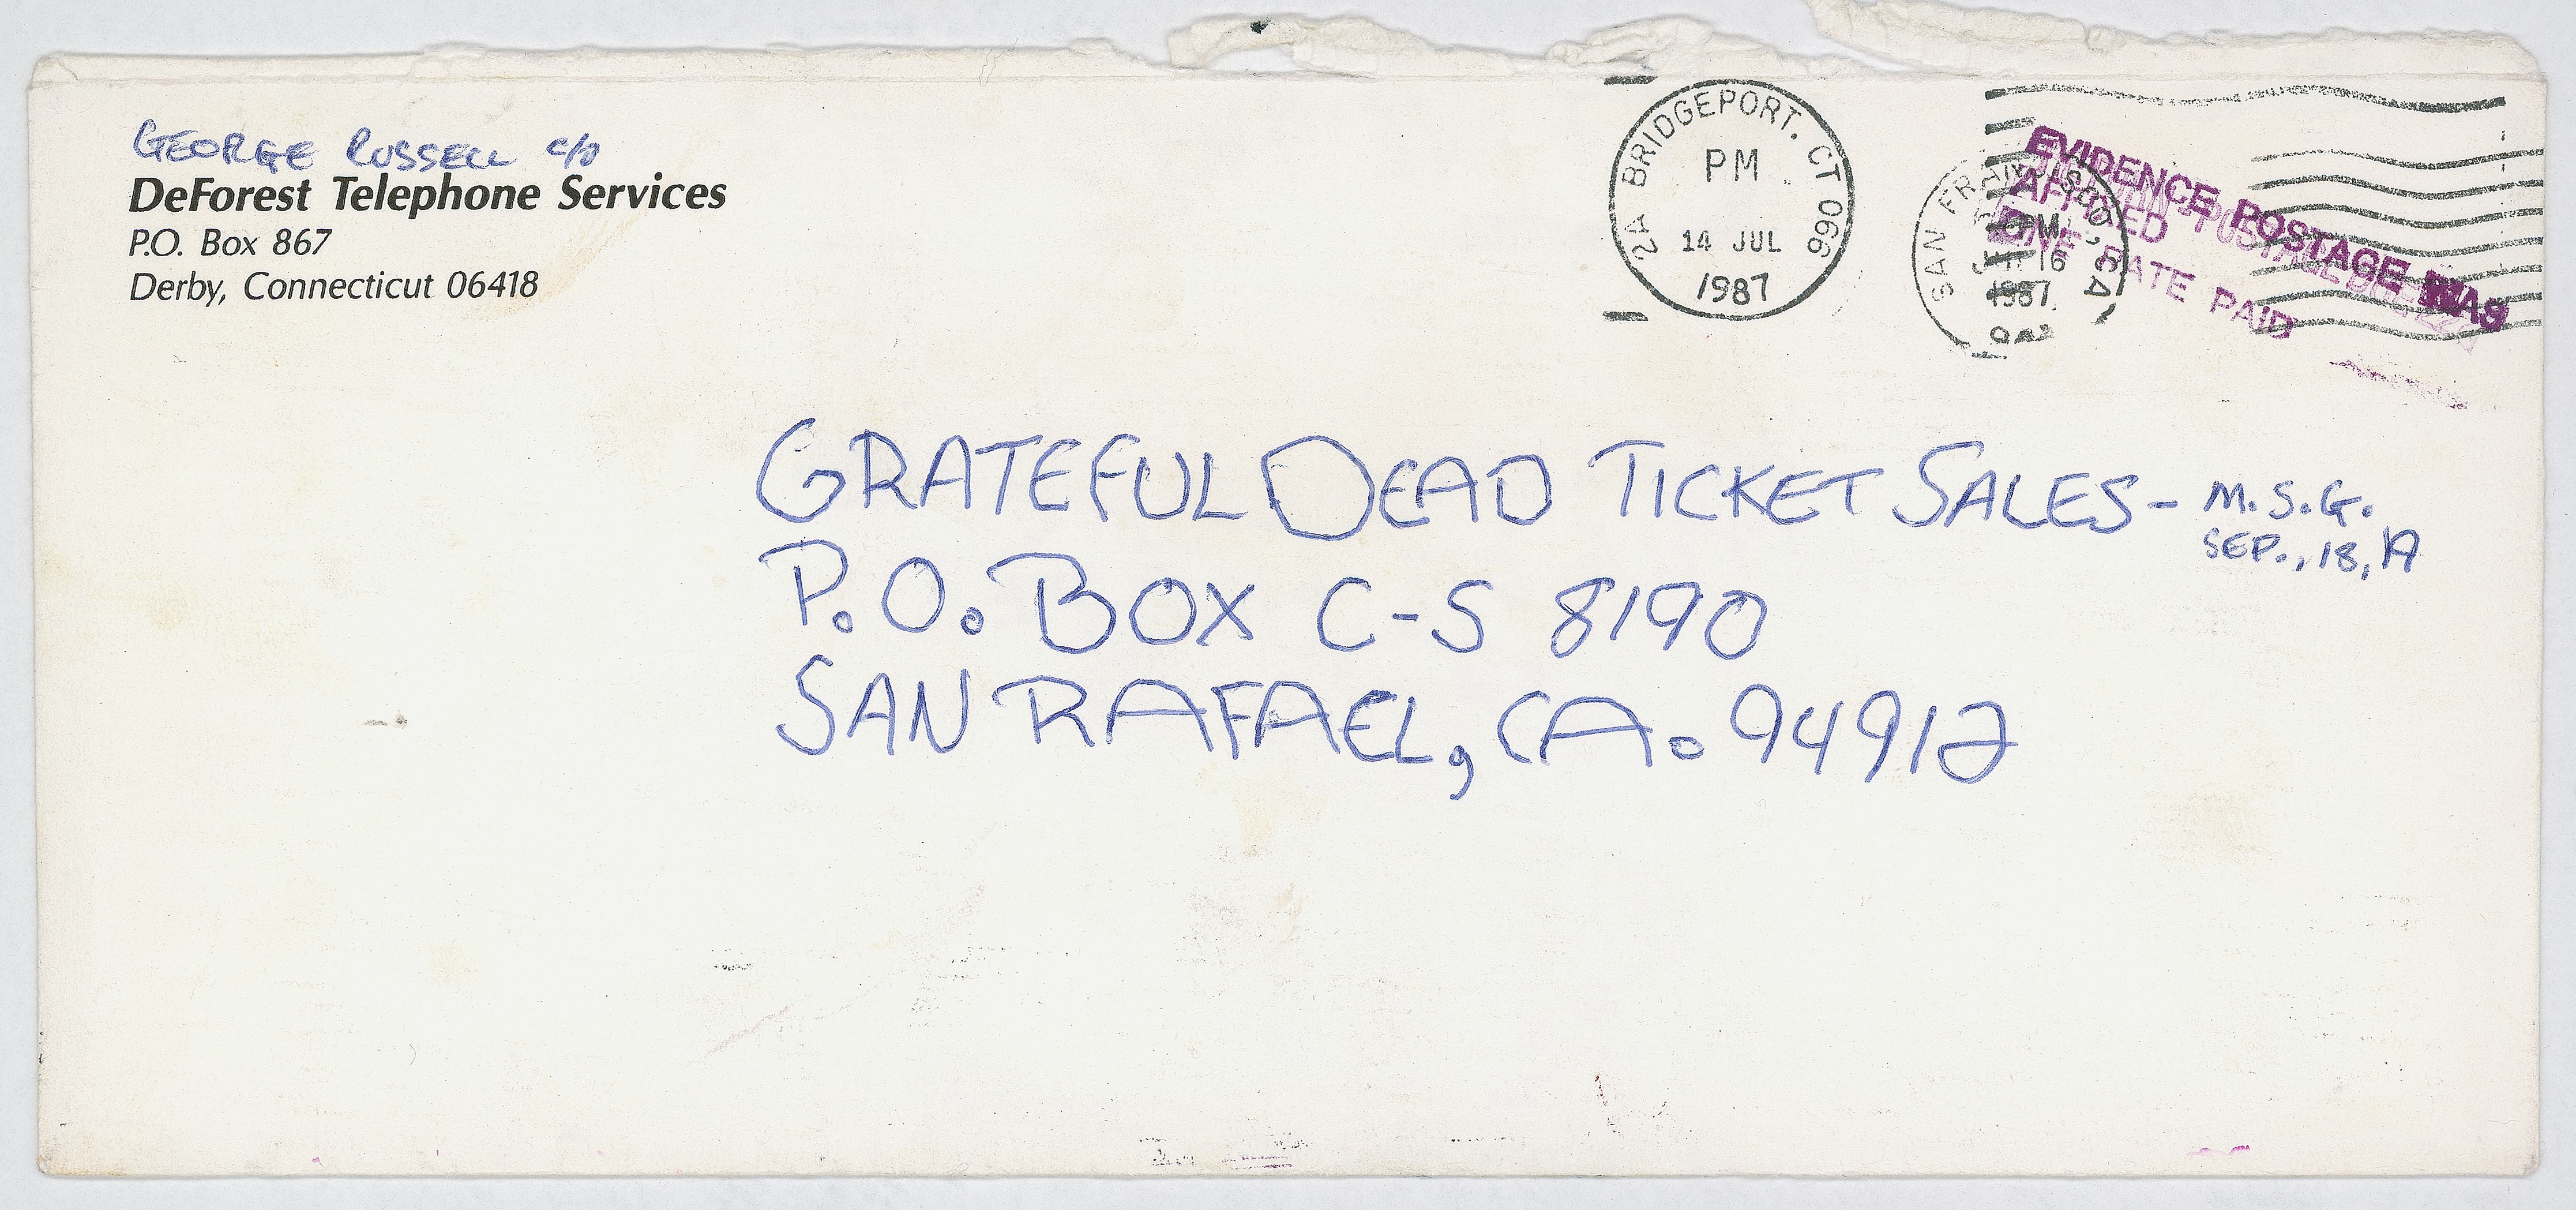 GEORGE RUSSELL c/o
DeForest Telephone Services
P.O. Box 867
Derby, Connecticut 06418
2A BRIDGEPORT. CT 066
PM
14 JUL
1987
SAN FRANCISCO, CA
PM
16
1987
EVIDENCE POSTAGE WAS
AFFIXED
RATE PAID
GRATEFUL DEAD TICKET SALES - M.S.G.
SEP., 18,
P.O. BOX C-S 8190
SAN RAFAEL, CA. 94912